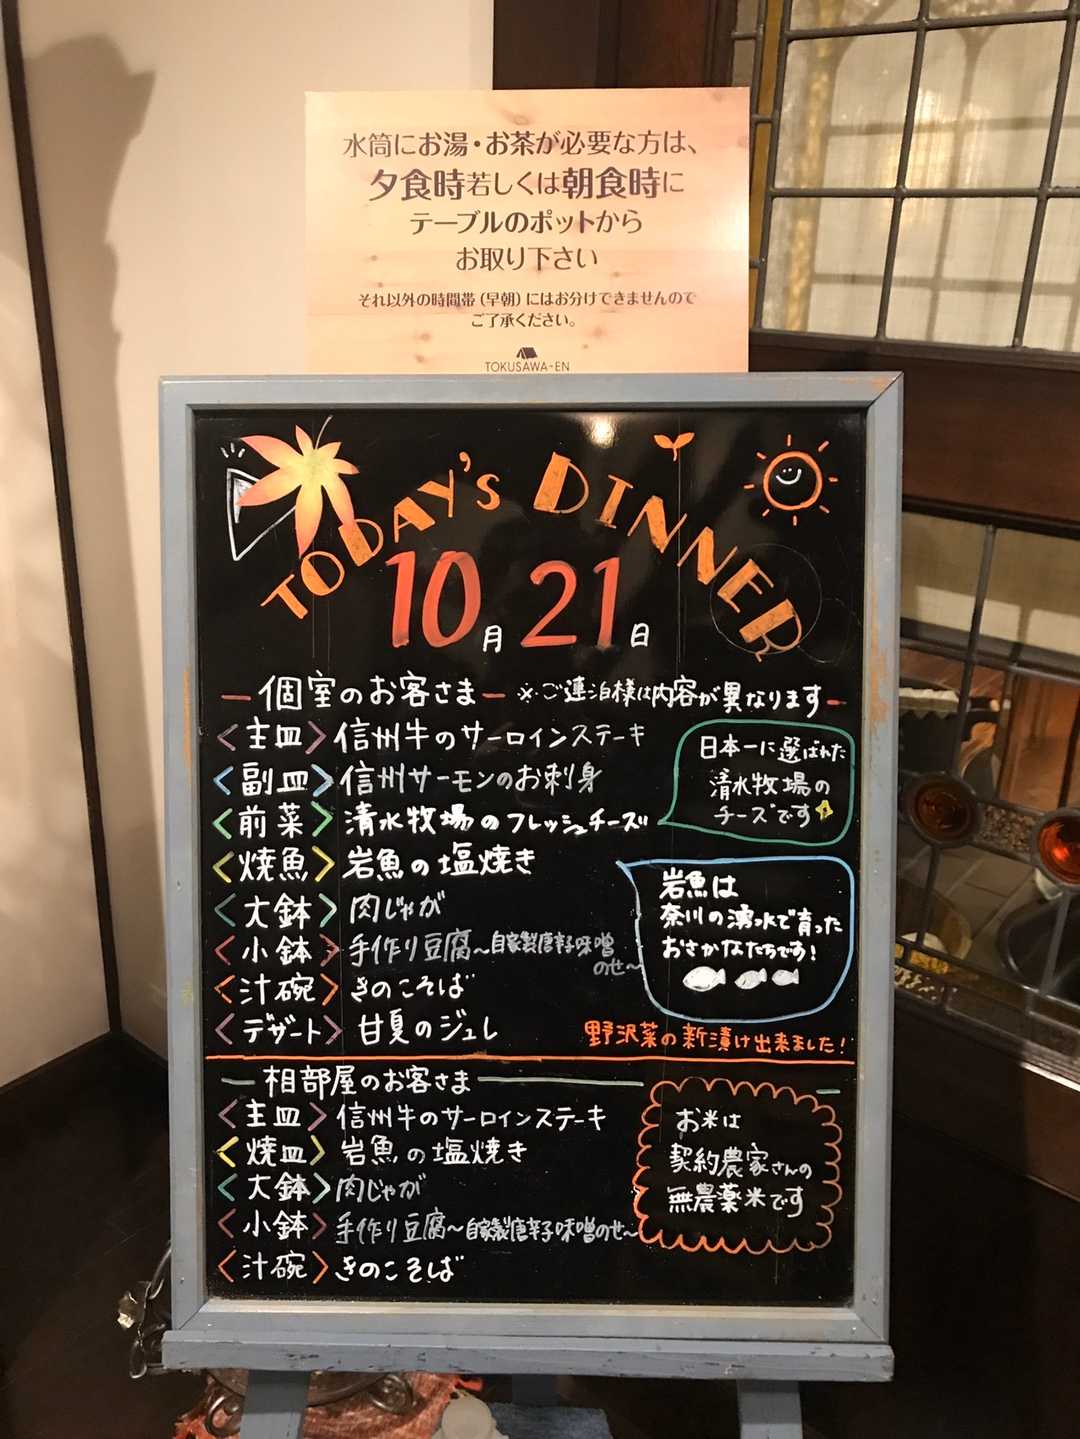 水筒にお湯・お茶が必要な方は、
夕食時若しくは朝食時に
テーブルのポットから
お取り下さい
それ以外の時間帯（早朝）にはお分けできませんので
ご了承ください。
TOKUSAWA-EN
TODAY'S DINNER
10月21日
個室のお客さま ※ご連泊様は内容が異なります
<主皿> 信州牛のサーロインステーキ
<副皿> 信州サーモンのお刺身
<前菜> 清水牧場のフレッシュチーズ
<焼魚> 岩魚の塩焼き
<大鉢> 肉じゃが
<小鉢> 手作り豆腐～自家製唐辛子味噌
のせ～
<汁碗> きのこそば
<デザート> 甘夏のジュレ
日本一に選ばれた
清水牧場の
チーズです
岩魚は
奈川の湧水で育った
おさかなたちです!
野沢菜の新漬け出来ました!
相部屋のお客さま
<主皿> 信州牛のサーロインステーキ
<焼皿> 岩魚の塩焼き
<大鉢> 肉じゃが
<小鉢> 手作り豆腐～自家製唐辛子味噌のせ～
<汁碗> きのこそば
お米は
契約農家さんの
無農薬米です